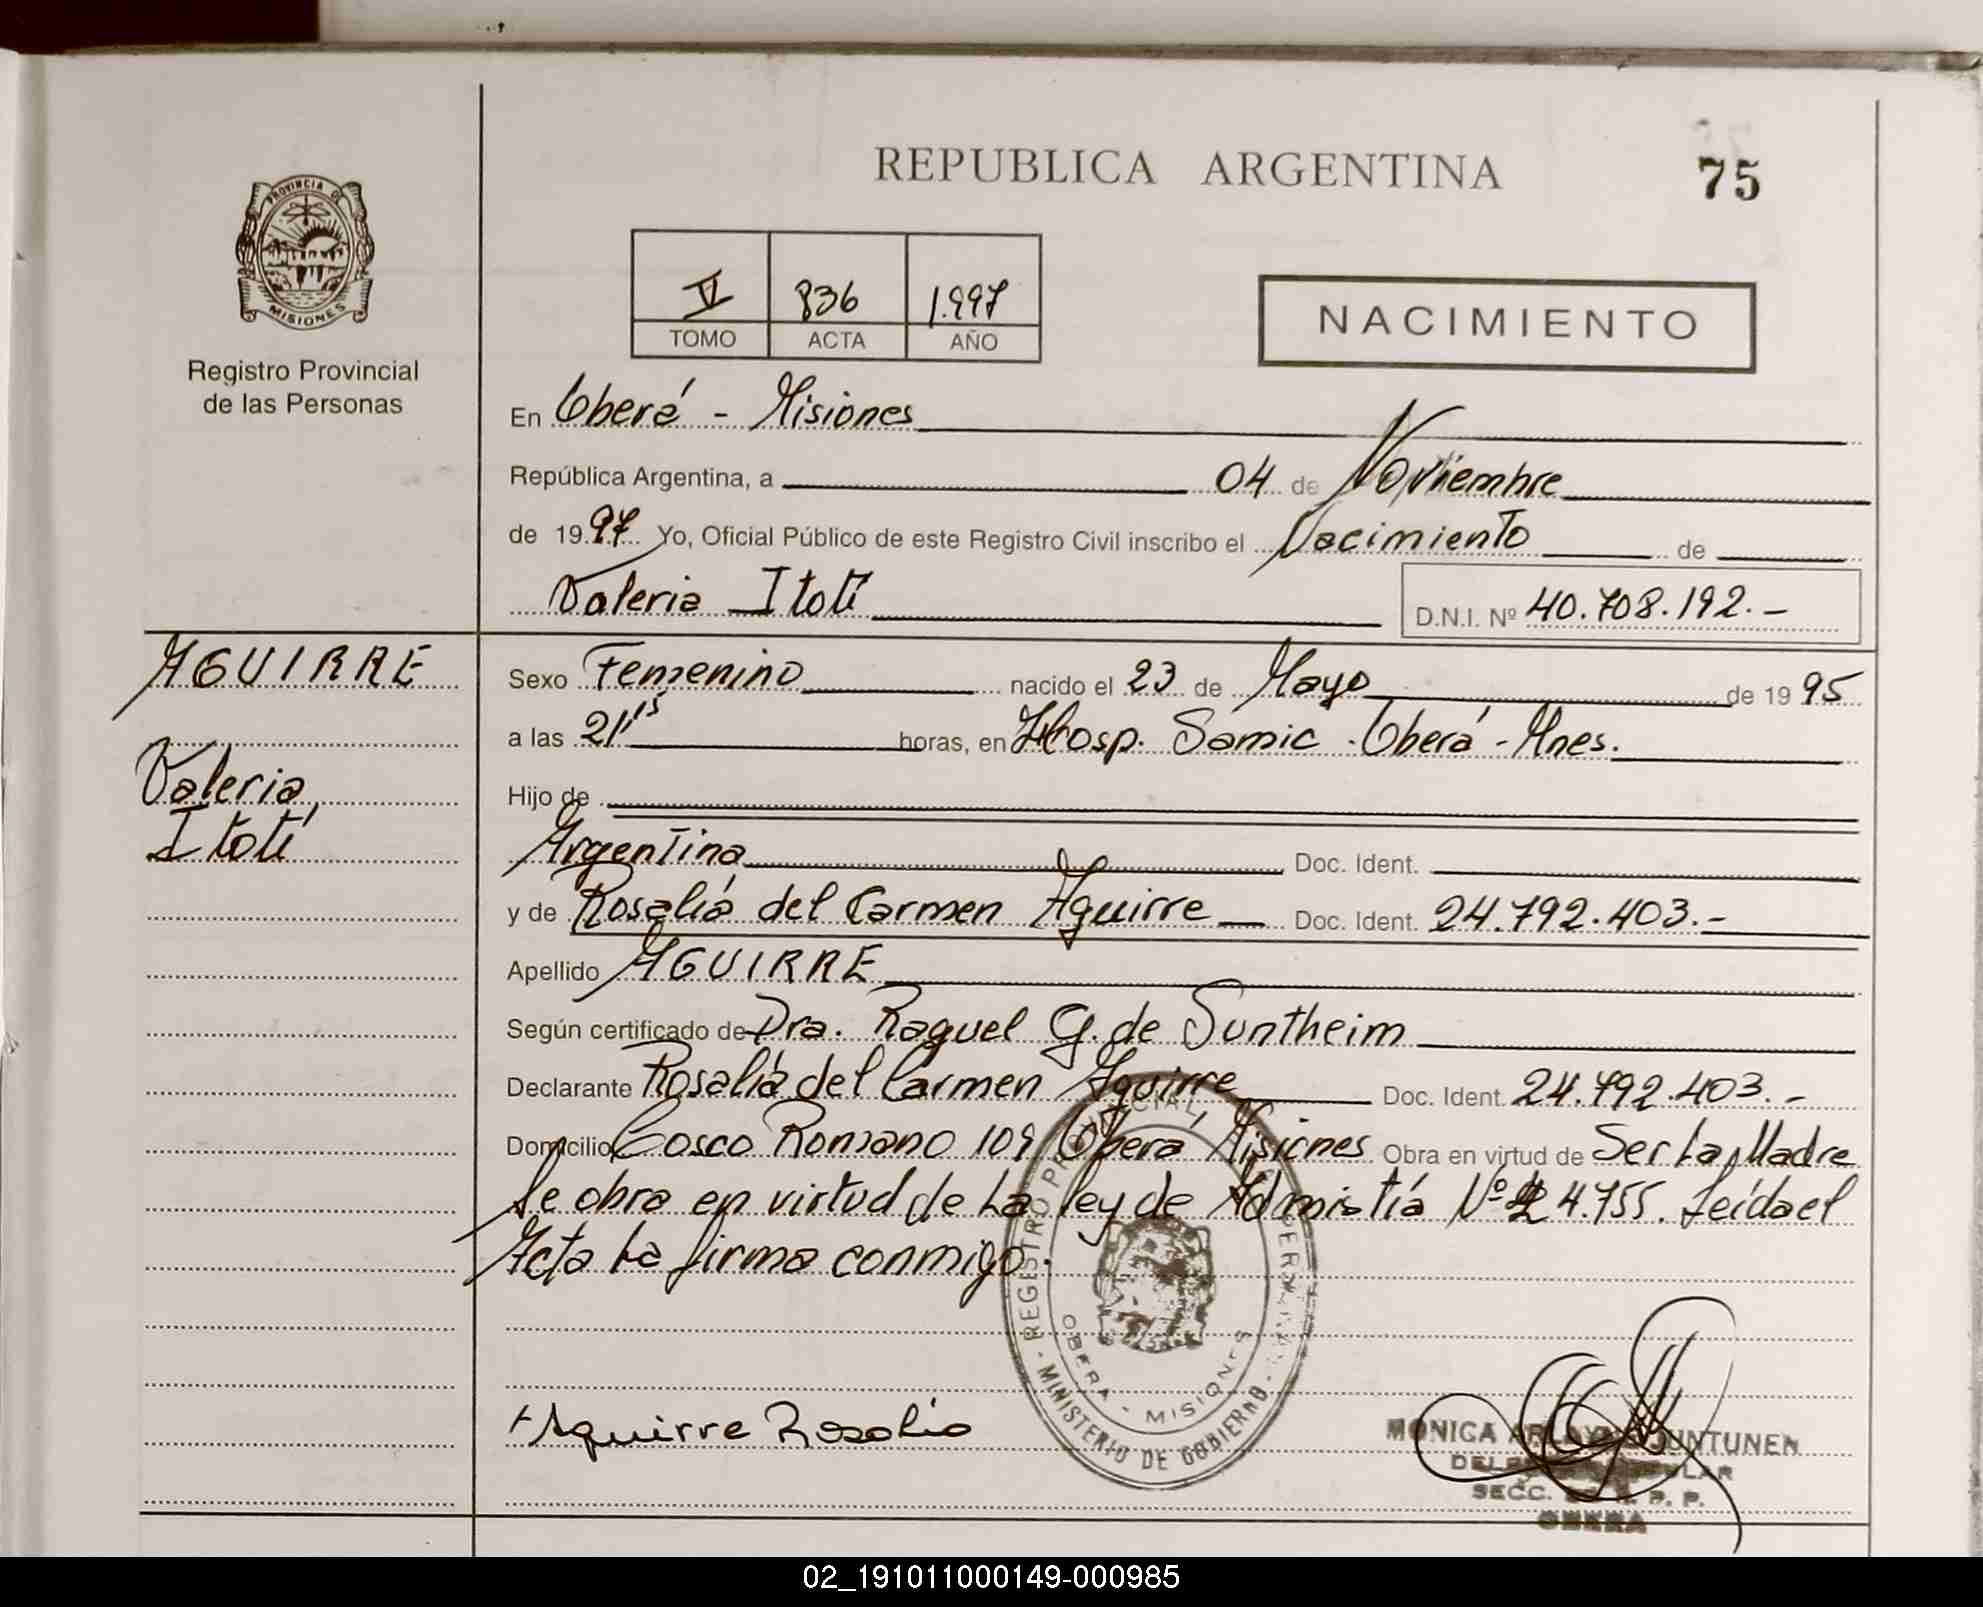 REPUBLICA ARGENTINA
75
PROVINCIA DE
MISIONES
Registro Provincial
de las Personas
V 836 1.997
TOMO ACTA AÑO
NACIMIENTO
En Oberá - Misiones
República Argentina, a 04 de Noviembre
de 1997 Yo, Oficial Público de este Registro Civil inscribo el Nacimiento de
Valeria Itatí
D.N.I. Nº 40.708.192.-
AGUIRRE
Valeria,
Itatí
Sexo Femenino nacido el 23 de Mayo de 1995
a las 21,15 horas, en Hosp. Samic . Oberá - Mnes.
Hijo de
Argentina Doc. Ident.
y de Rosalía del Carmen Aguirre Doc. Ident. 24.792.403.-
Apellido AGUIRRE
Según certificado de Dra. Raquel G. de Suntheim
Declarante Rosalía del Carmen Aguirre Doc. Ident. 24.792.403.-
Domicilio Cosco Romano 109 Oberá, Misiones Obra en virtud de Ser La Madre
Se obra en virtud de La Ley de Admistía Nº 24.755. Leída el
Acta La firma conmigo.
Aguirre Rosalia
REGISTRO PROVINCIAL
OBERA - MISIONES
MINISTERIO DE GOBIERNO
MONICA JUNTUNEN
SECC. P. P.
OBERA
02_191011000149-000985